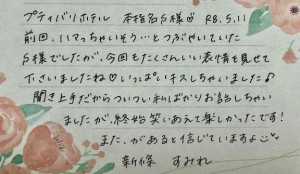 プティバリホテル 本指名S様♡ R8.5.11
前回、ハマっちゃいそう…とつぶやいていた
S様でしたが、今回もたくさんいい表情を見せて
下さいましたね♡いっぱいキスしちゃいました♪
聞き上手だからついつい私ばかりお話しちゃい
ましたが、終始笑いあえて楽しかったです！
また、があると信じていますよ
新條 すみれ